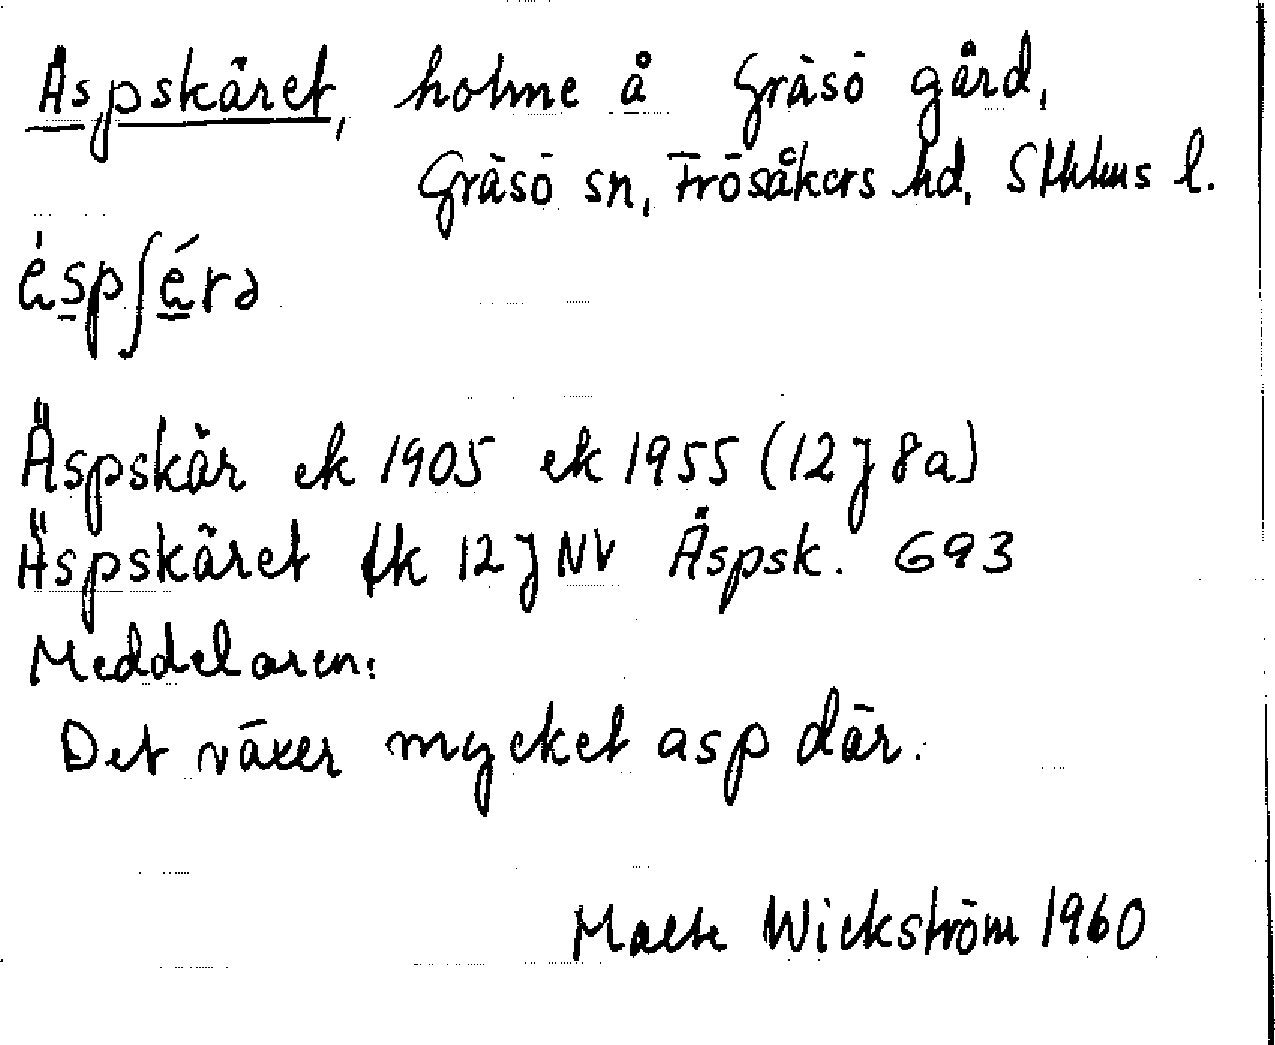 Aspskäret, holme å Gräsö gård,
Gräsö sn, Frösåkers hd, Sthlms l.
èspʃérə
Äspskär ek 1905 ek 1955 (12 J 8a)
Äspskäret fk 12 J NV Äspsk. 693
Meddelaren:
Det växer mycket asp där.
Malte Wickström 1960